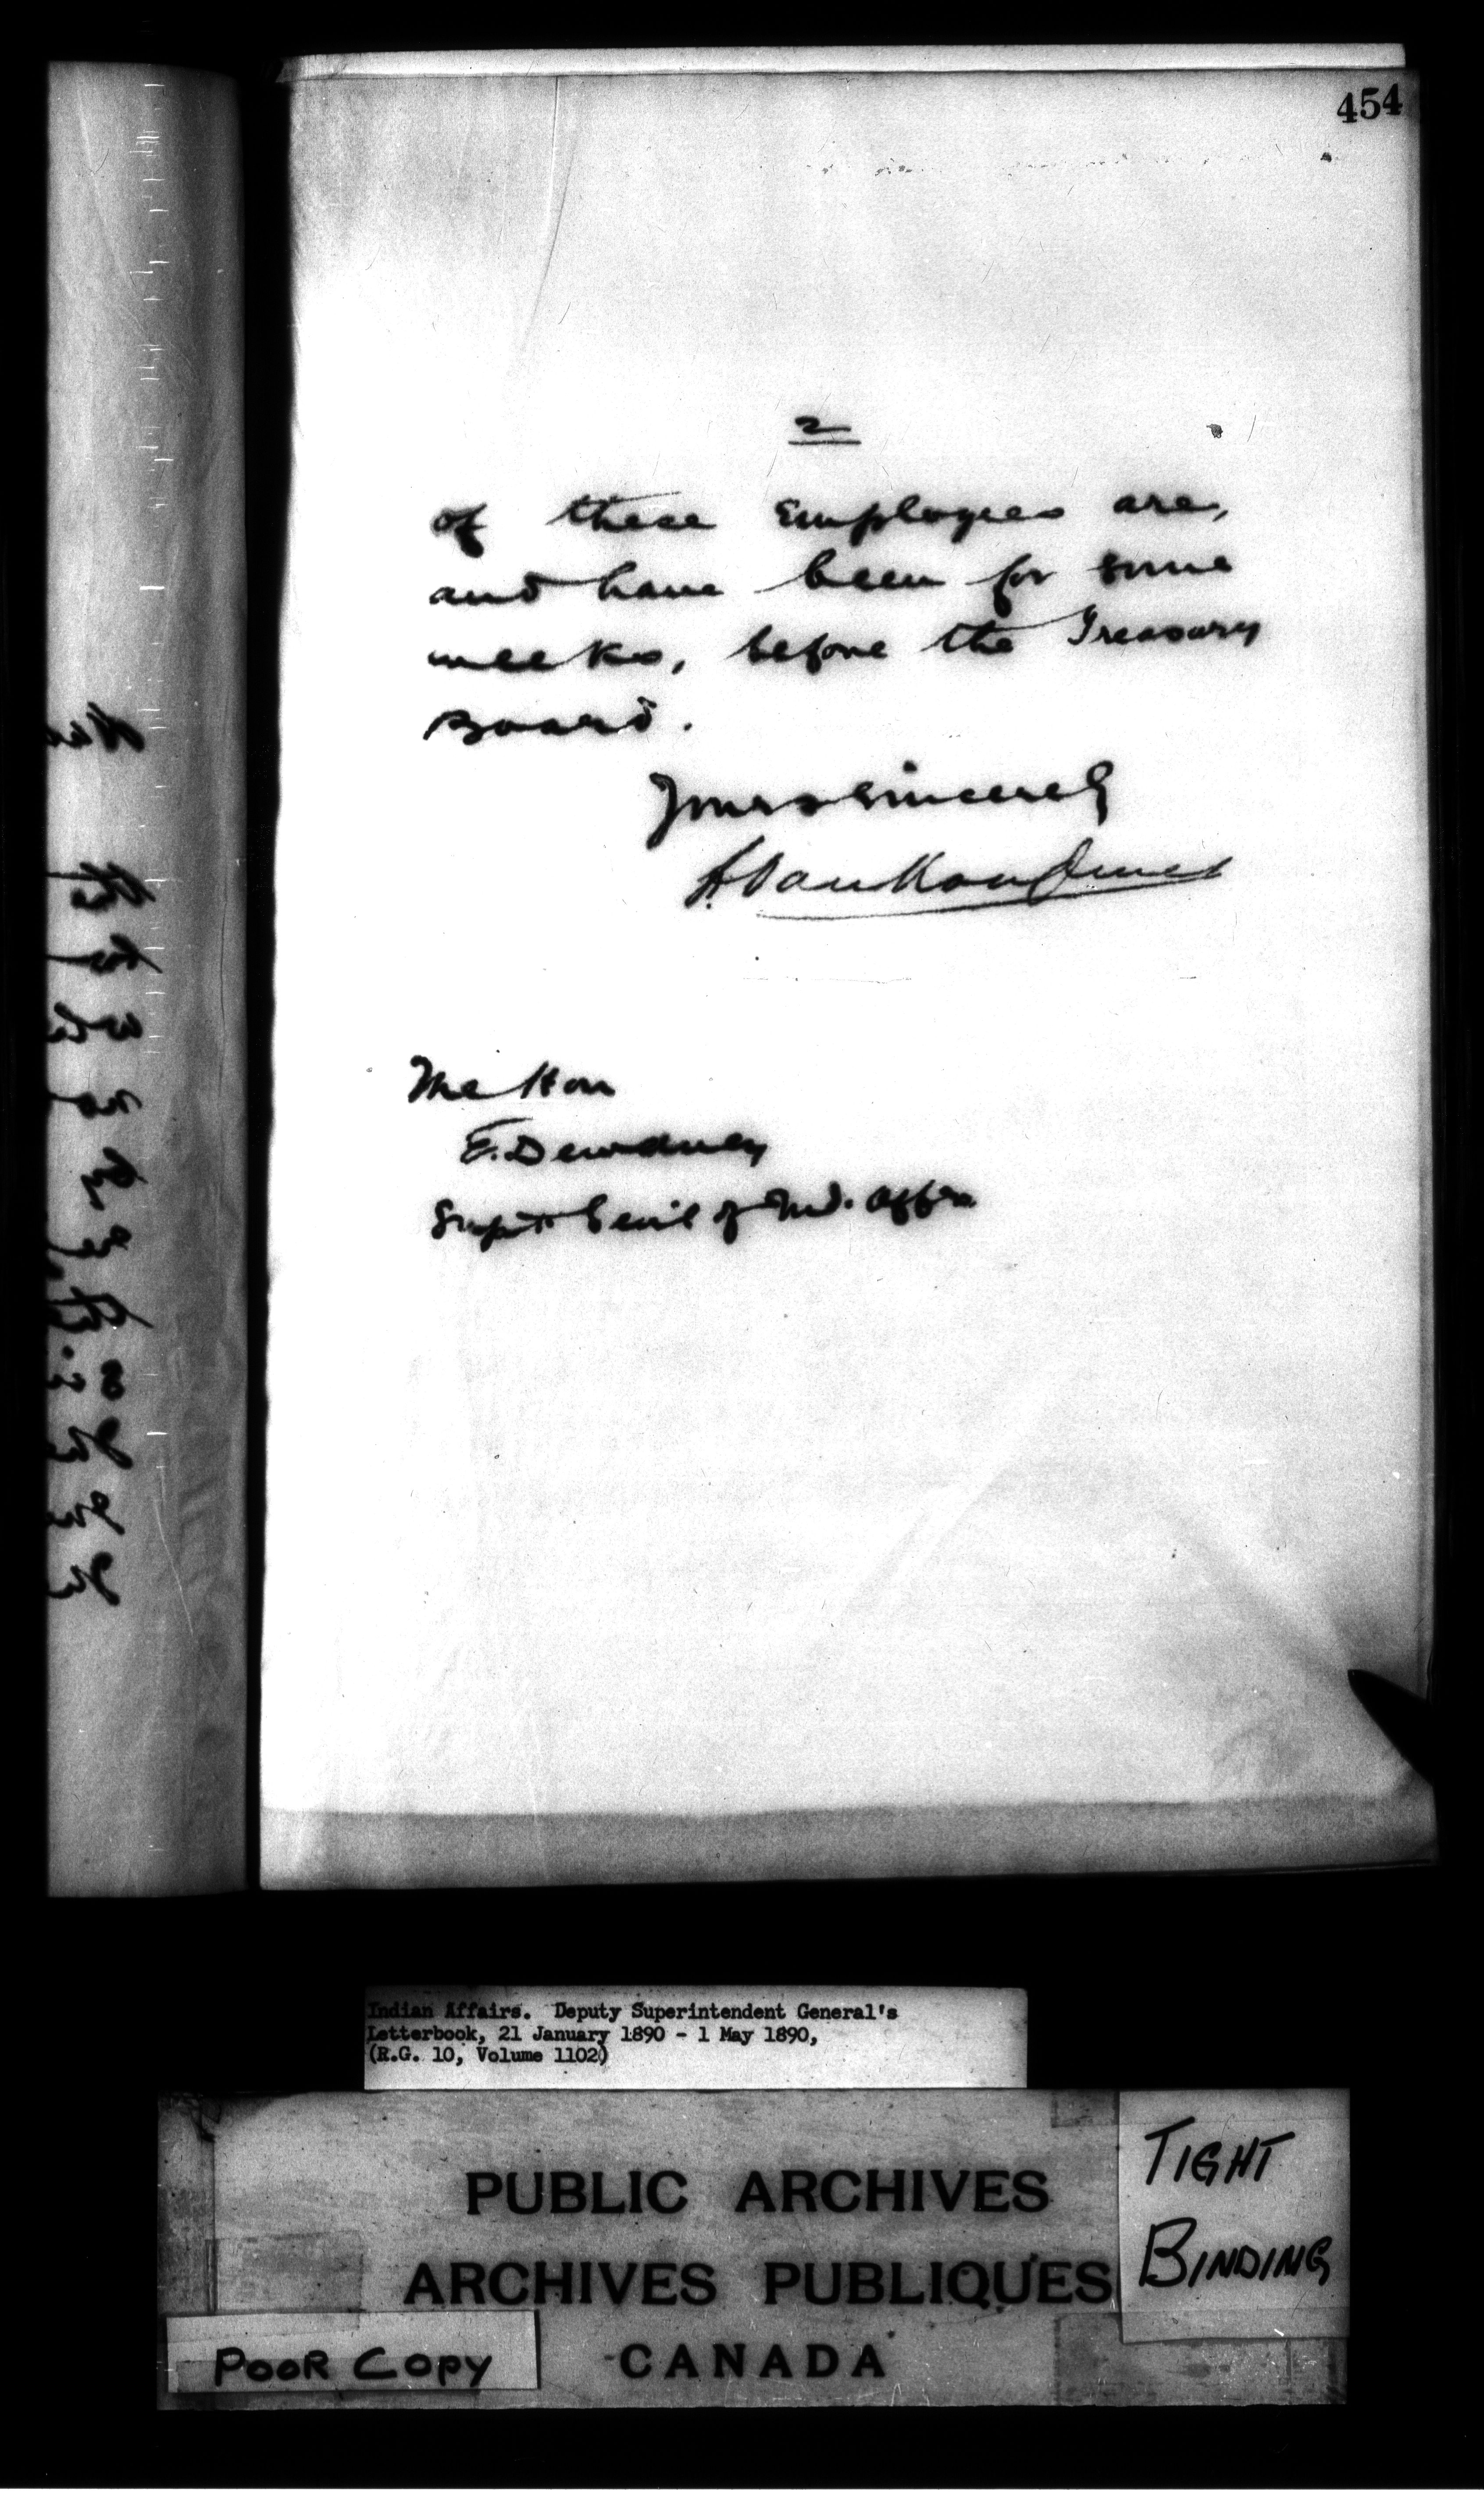 454
2
of these Employees are,
and have been for some
weeks, before the Treasury
Board.
Yours sincerely
L. Vankoughnet
The Hon
E. Dewdney
Supt Gen'l of Ind. Affrs
Indian Affairs. Deputy Superintendent General's
Letterbook, 21 January 1890 - 1 May 1890,
(R.G. 10, Volume 1102)
PUBLIC ARCHIVES
ARCHIVES PUBLIQUES
CANADA
TIGHT
BINDING
POOR COPY